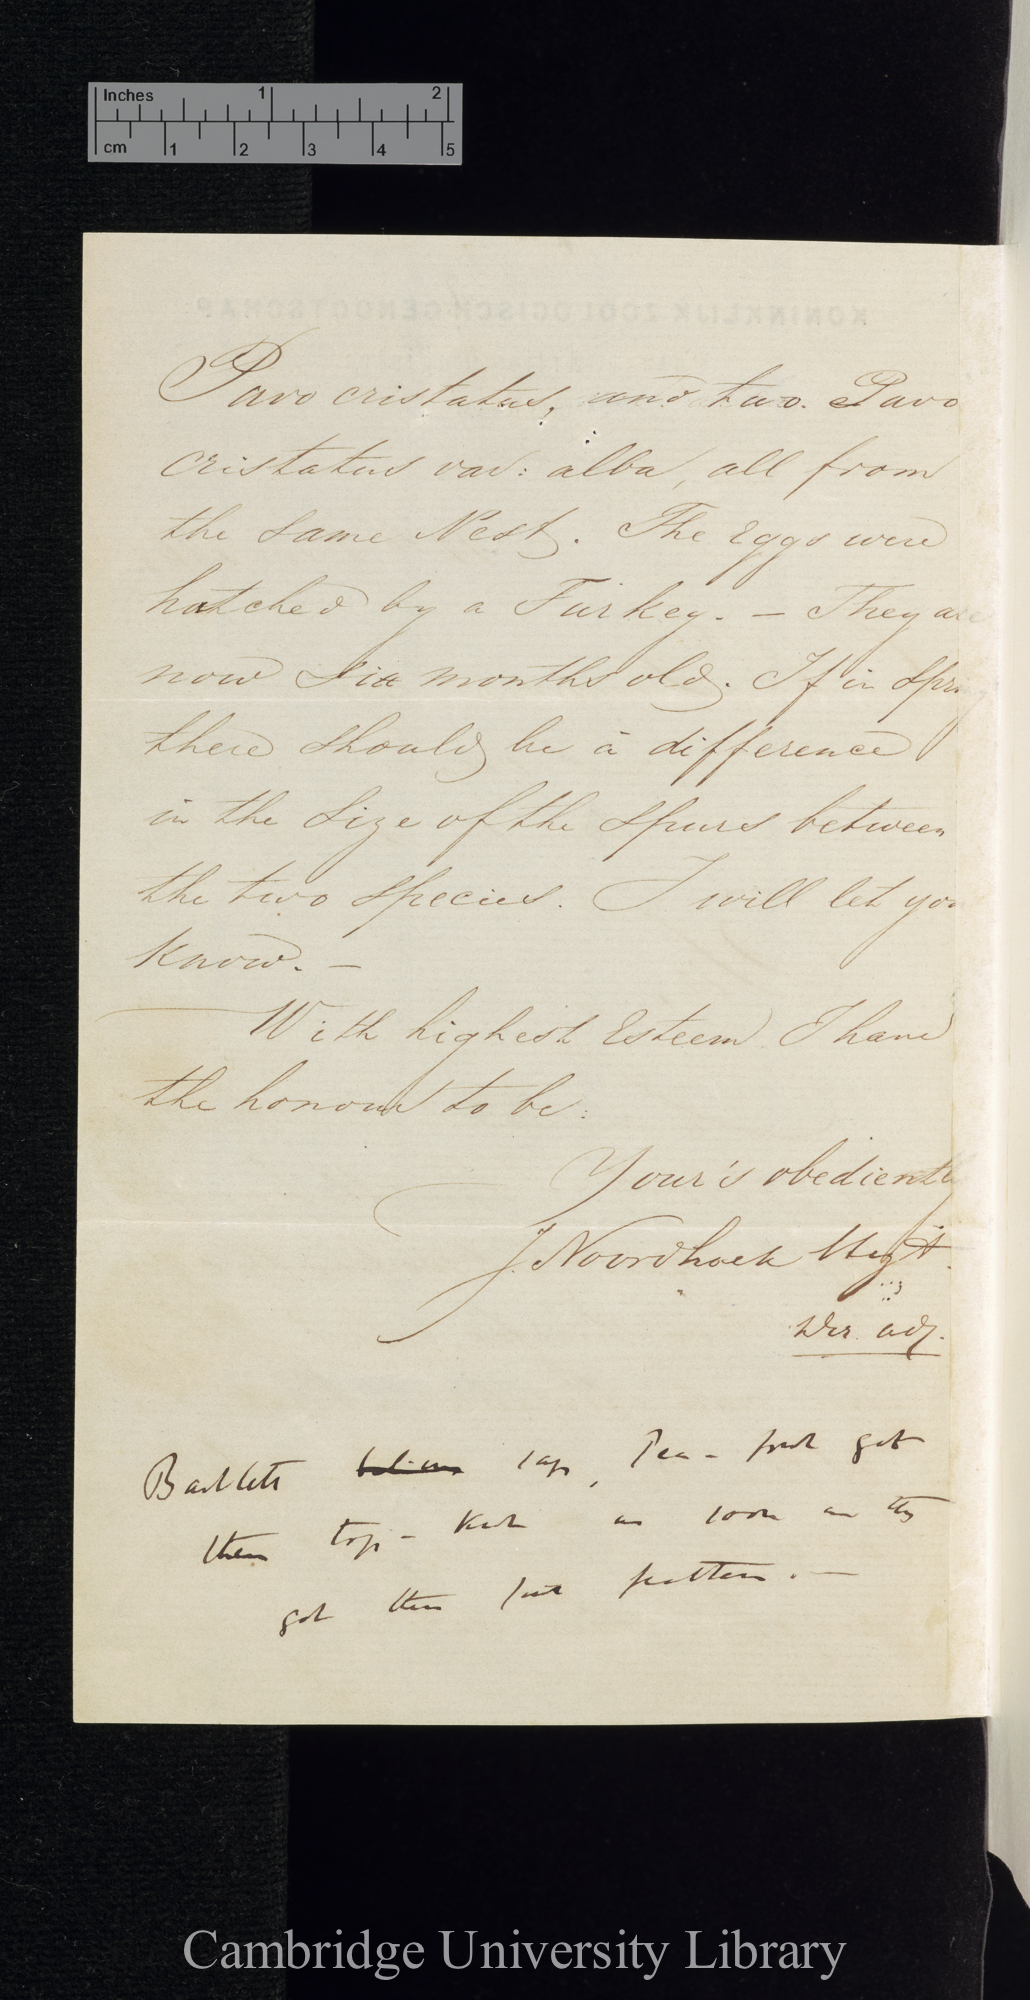 Inches 1 2
cm 1 2 3 4 5
KONINKLIJK ZOOLOGISCH GENOOTSCHAP
Pavo cristatus, and two. Pavo
cristatus var: alba, all from
the same Nest. The Eggs were
hatched by a Turkey. — They are
now six months old. If in Spring
there should be a difference
in the size of the spurs between
the two species. I will let you
know. —
With highest Esteem I have
the honour to be:
Your's obediently
J. Noordhoek Hegt.
Dir. adj.
Bartlett believes says, Pea-fowl get
their top-knot as soon as they
got their first feathers. —
Cambridge University Library